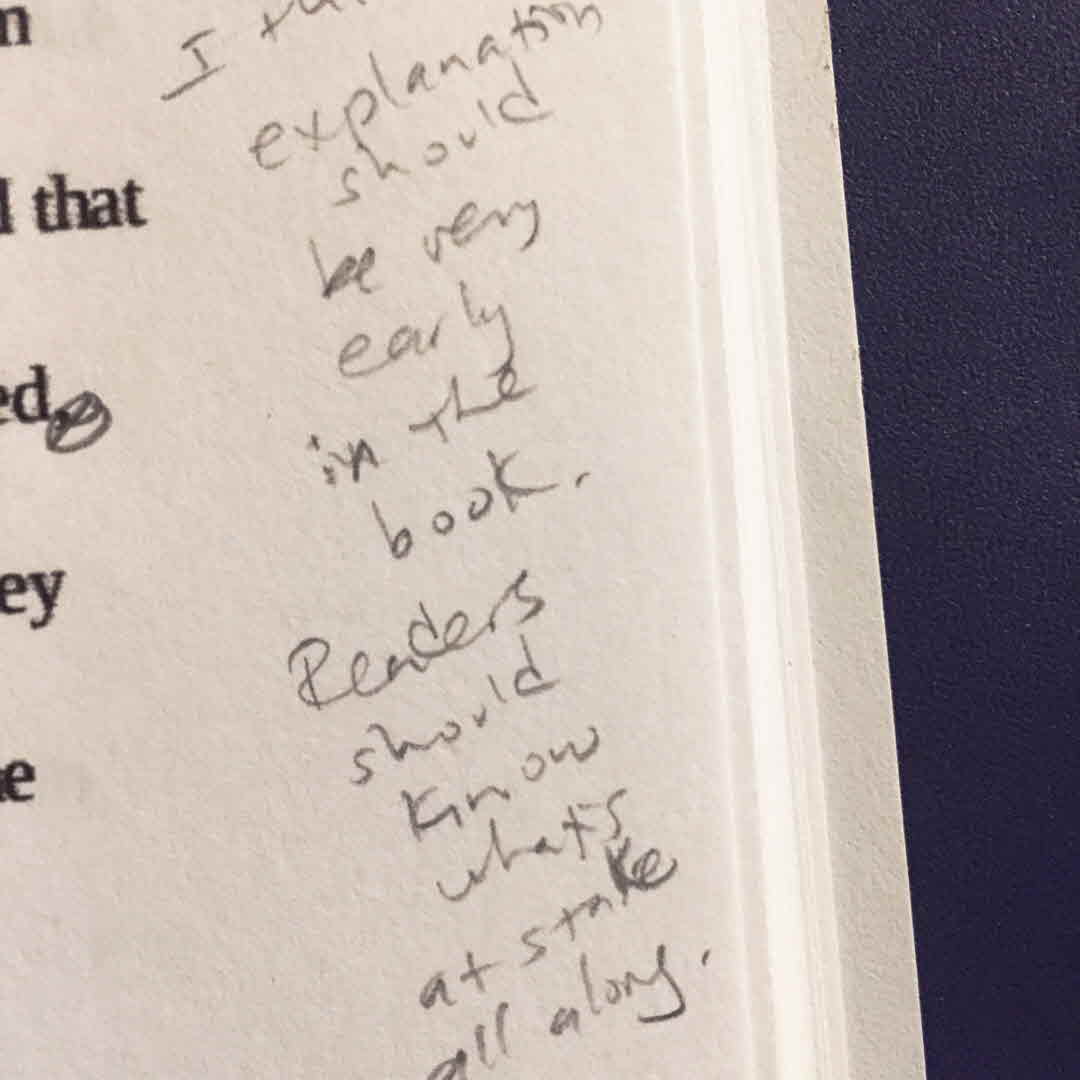 n
I
explanation
should
that
be very
early
ed.
in the
book.
ey
Readers
should
know
e
what's
at stake
all along.